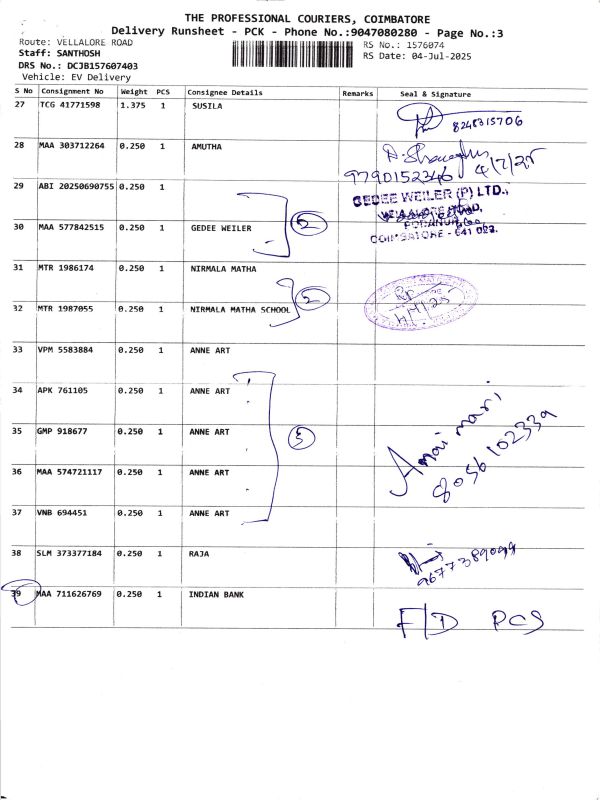 THE PROFESSIONAL COURIERS, COIMBATORE
Delivery Runsheet - PCK - Phone No.:9047080280 - Page No.:3
Route: VELLALORE ROAD
RS No.: 1576074
Staff: SANTHOSH
RS Date: 04-Jul-2025
DRS No.: DCJB157607403
Vehicle: EV Delivery
S No Consignment No Weight PCS Consignee Details Remarks Seal & Signature
27 TCG 41771598 1.375 1 SUSILA
8248315706
28 MAA 303712264 0.250 1 AMUTHA
9790152346 4/7/25
29 ABI 20250690755 0.250 1
GEDEE WEILER (P) LTD.,
2
30 MAA 577842515 0.250 1 GEDEE WEILER
COIMBATORE - 641 023.
31 MTR 1986174 0.250 1 NIRMALA MATHA
2
32 MTR 1987055 0.250 1 NIRMALA MATHA SCHOOL
33 VPM 5583884 0.250 1 ANNE ART
34 APK 761105 0.250 1 ANNE ART
35 GMP 918677 0.250 1 ANNE ART
5
36 MAA 574721117 0.250 1 ANNE ART
37 VNB 694451 0.250 1 ANNE ART
38 SLM 373377184 0.250 1 RAJA
39 MAA 711626769 0.250 1 INDIAN BANK
F/D PCS